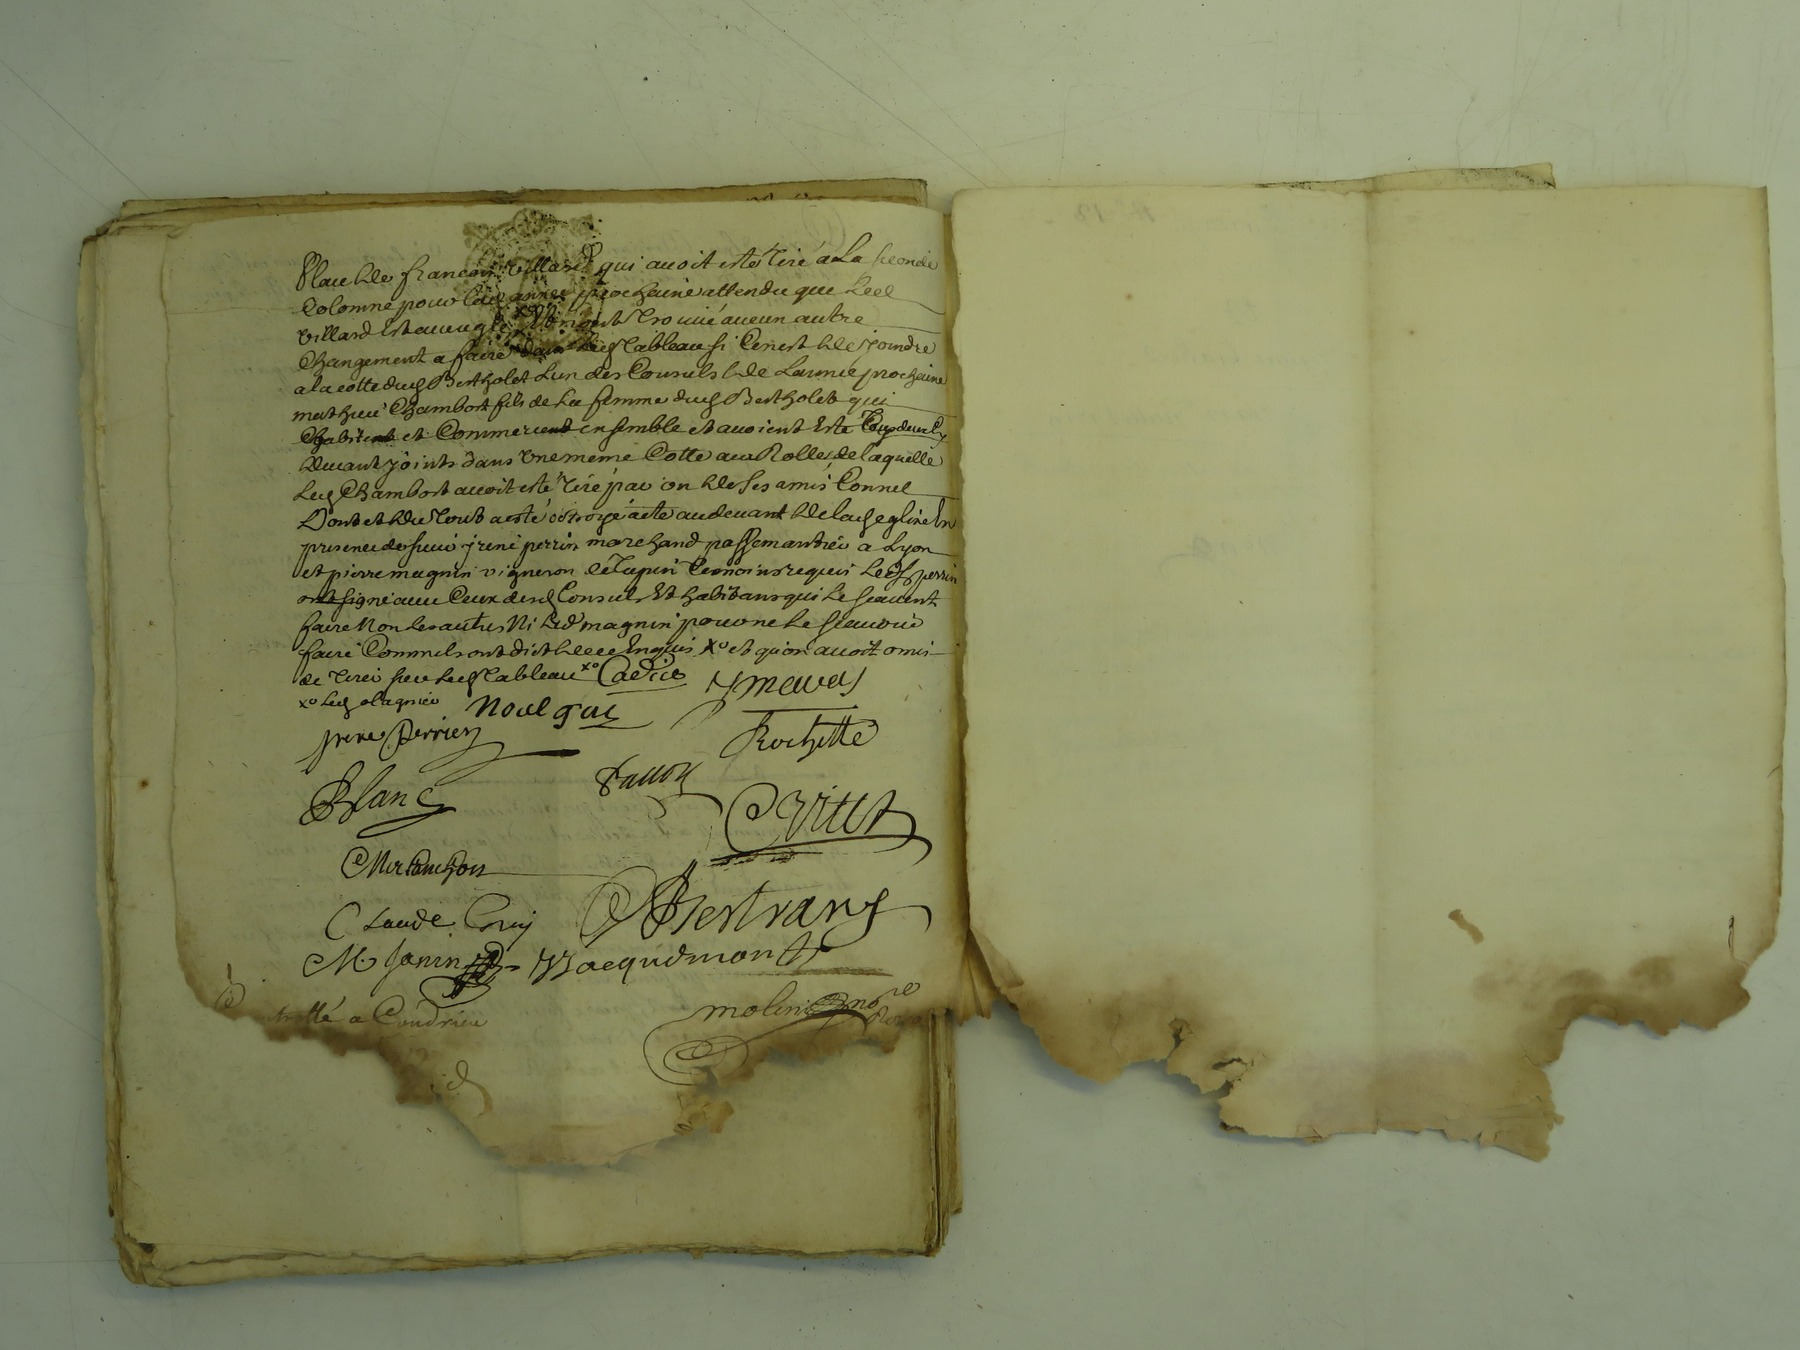 place de francois villard qui avoit esté tiré a La seconde
Colomne pour Lad annee prochaine attendu que Led
villard Est aveugle et n'ont trouvé aucun autre
Changement a faire dans Led tableau si Cen'est de joindre
a la cotte dud Bertholet L'un des Consuls de L'année prochaine
mathieu Chambort fils de La femme dud Bertholet qui
habitent et Commercent ensemble et avoient Esté
devant joints dans Une meme Cotte aux Rolles de laquelle
Led Chambort avoit esté tiré par un de ses amis Connel
Dont et du tout a esté octroyé acte audevant de lad eglize En
presence de sieur jrené perrin marchand passemantier a Lyon
et pierre magnin vigneron de tupin temoins requis Led s perrin
ont signé avec Ceux desd Consuls Et habitans qui Le scavent
faire Non Les autres Ni Led magnin pour ne Le scavoir
faire Comm'ils ont dict de ce Enquis xo et qu'on avoit omis
de tirer sur Led tableau xo Cadier
xo Led olagnier Noel gui
jrené Perrien Rochette
Blanc favon
Vittet
Claude Bertrand
M. Janin Jacquemont
a Condrieu molin no re